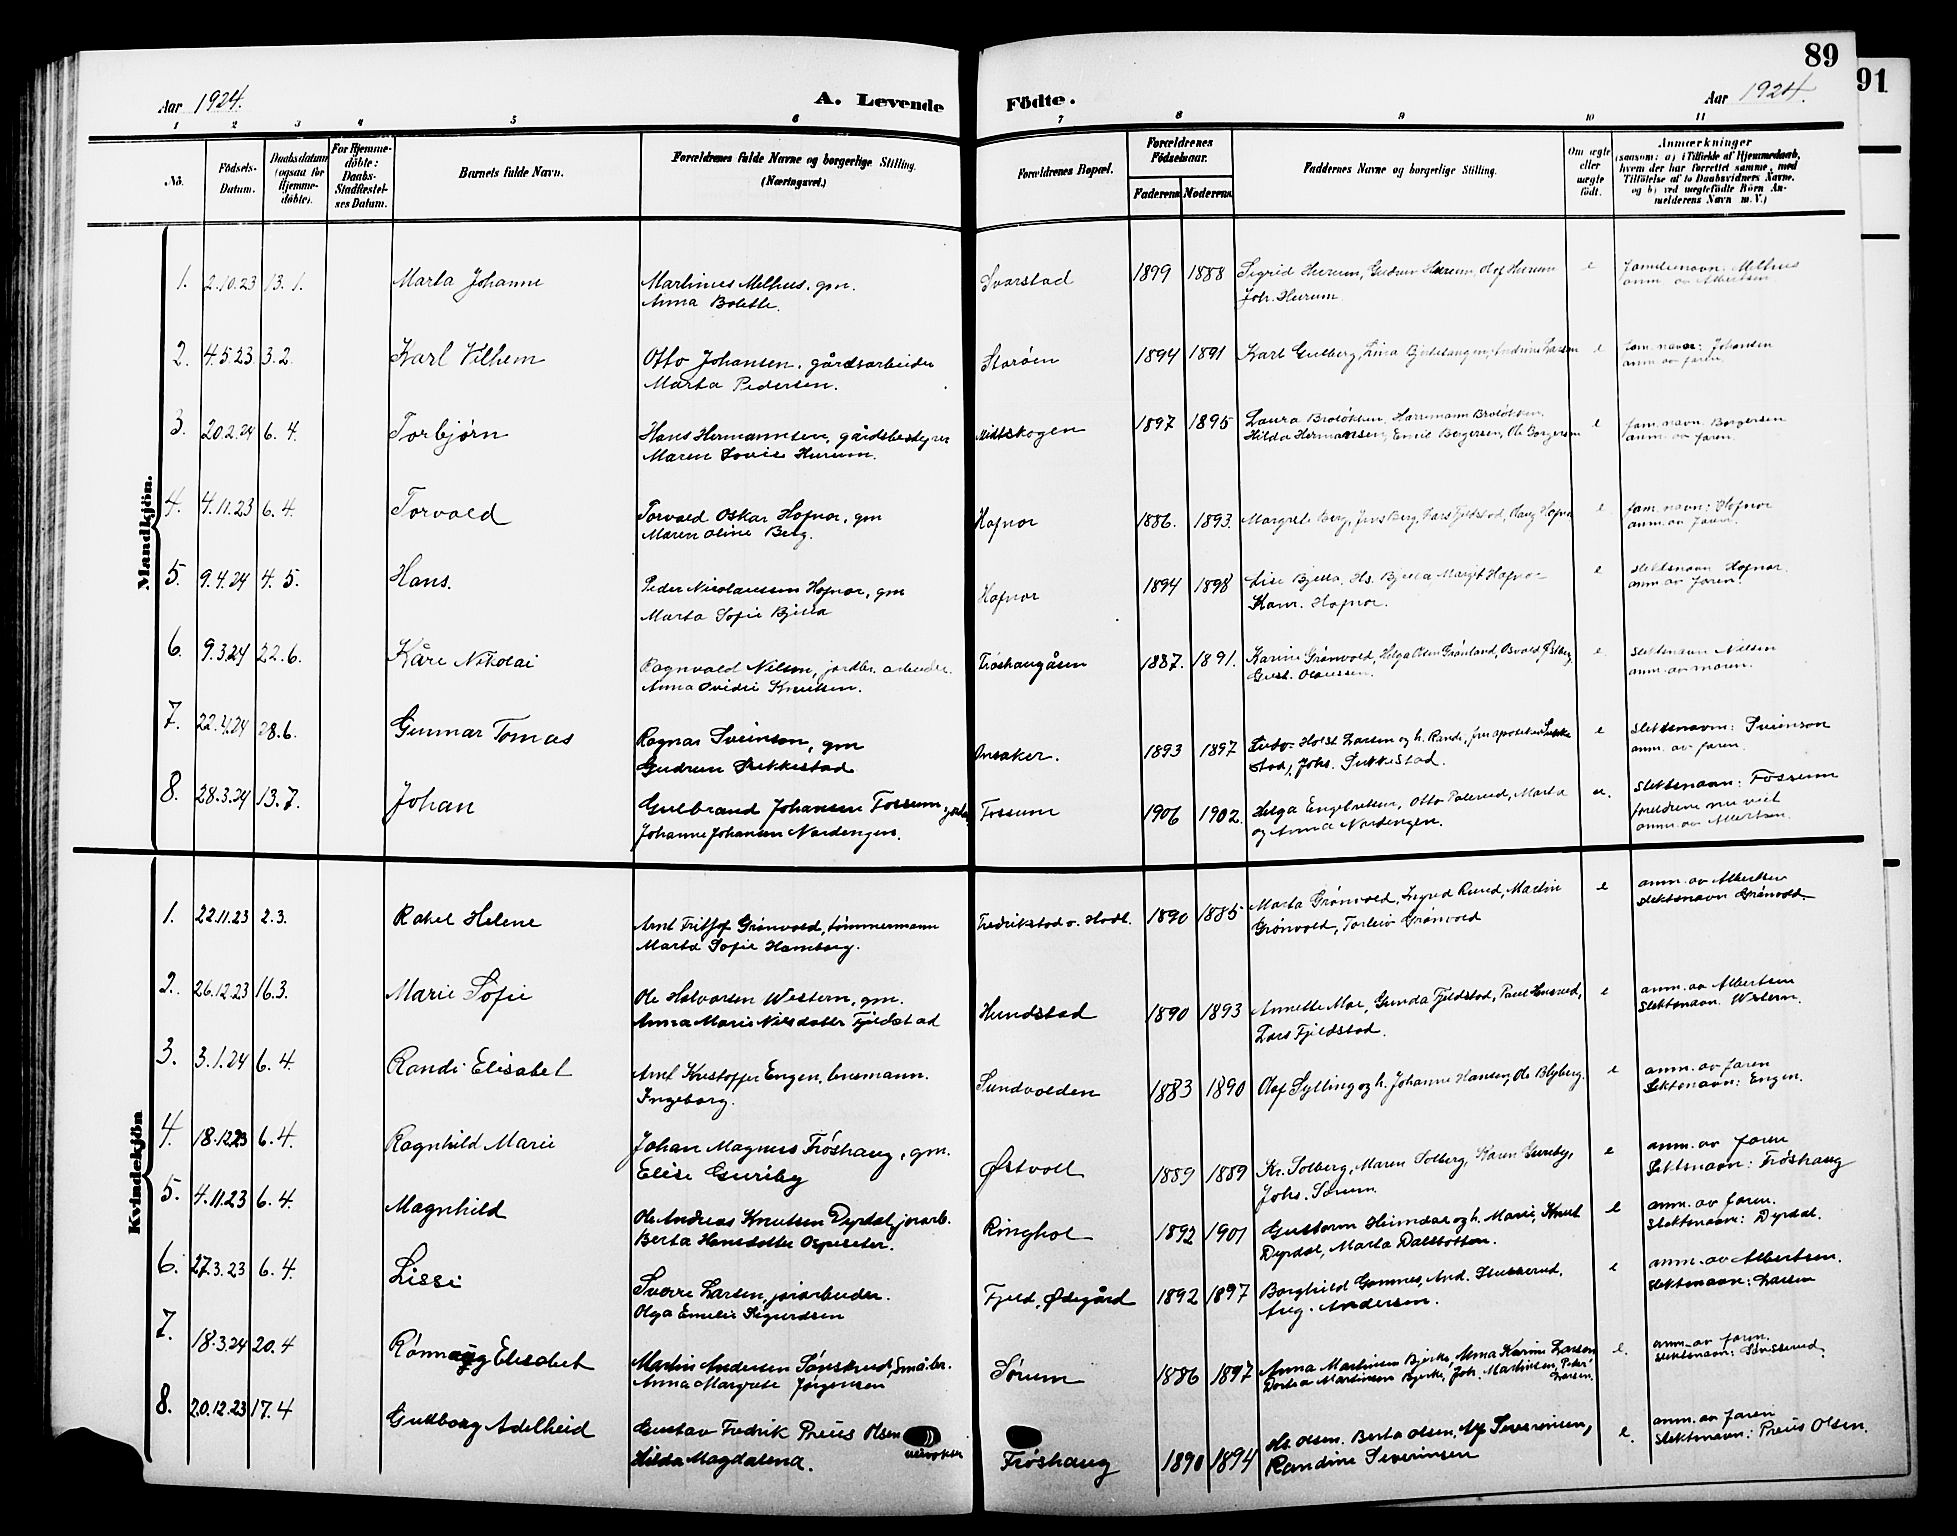 89
91
Aar 1924.
A. Levende Födte.
Aar 1924.
1 2 3 4 5 6 7 8 9 10 11
No.
Födsels-Datum.
Daabsdatum (ogsaa for Hjemme-döbte).
For Hjemme-döbte: Daabs-Stadfæstel-ses Datum.
Barnets fulde Navn.
Forældrenes fulde Navne og borgerlige Stilling.
(Næringsvei.)
Forældrenes Bopæl.
Forældrenes Födselsaar.
Faderens Moderens
Faddernes Navne og borgerlige Stilling.
Om ægte eller uægte födt.
Anmærkninger
(saasom: a) i Tilfælde af Hjemmedaab,
hvem der har forrettet samme, med
Tilföielse af to Daabsvidners Navne.
og b) ved uægtefödte Börn An-
melderens Navn m. V.)
Mandkjön.
1. 2.10.23 13.1. Marta Johanne Martinius Melhus. gm. Svarstad 1899 1888 Sigrid Hurum, Gudrun Hurum, Olaf Hurum e Familienavn: Melhus
Anna Bolette. Joh. Hurum. anm. av Albertsen
2. 4.5.23 3.2. Karl Vilhem Otto Johansen. gårdsarbeider Storøen 1894 1891 Karl Gulberg, Lina e fam. navn: Johansen
Marta Pedersen. anm. av faren
3. 20.2.24 6.4. Torbjørn Hans Hermannsen, gårdsbestyrer Midtskogen 1897 1895 Laura Braløkken, Hermann Braløkken, e fam. navn Borgersen
Maren Lovise Hurum. Hilda Hermansen, Emil Borgersen, Ole Borgersen anm. av faren.
4. 4.11.23 6.4. Torvald Torvald Oskar Hafnor, gm Hafnor 1886. 1893. Margrete Berg, Jens Berg, Lars Fjeldstad, Olaug Hafnor e fam. navn: Hafnor
Maren Oline Berg. anm. av faren.
5. 9.4.24 4.5. Hans. Peder Nicolaissen Hafnor, gm Hafnor 1894 1898 Lise Bjella, Hs. Bjella Margit Hafnor e slektsnavn Hafnor.
Marta Sofie Bjella Kam. Hafnor. anm. av faren.
6. 9.3.24 22.6. Kåre Nikolai Ragnvald Nilsen, jordbr. arbeider. Frøshaugåsen 1887. 1891. Karine Grønvold, Helga Olsen Grønland, Osvald Østberg, e slektsnavn Nilsen
Anna Ovidie Knutsen. Gust. Olaussen. anm. av moren.
7. 22.4.24 28.6. Gunnar Tomas Ragnar Sveinson, gm Onsaker. 1893 1897 Holst Larsen og h. Randi, fru apoteker Sukke- e slektsnavn: Sveinson
Gudrun Sukkestad stad, Johs. Sukkestad. anm. av faren.
8. 28.3.24 13.7. Johan Gulbrand Johansen Fossum, Fossum 1906 1902. Helga Engebretsen, Otto Palerud, Marta u. slektsnavn: Fossum
Johanne Johansen Nordengen. og Anna Nordengen. foreldrene nu viet
anm. av Albertsen.
Kvindekjön
1. 22.11.23 2.3. Rakel Helene Arnt Fritjof Grønvold, tømmermann Fredrikstad v. Hadl. 1890 1885 Marta Grønvold, Ingrid Rund, Martin e anm. av Albertsen
Marta Sofie Hamborg. Grønvold, Torleiv Grønvold slektsnavn Grønvold.
2. 26.12.23 16.3. Marie Sofie Ole Halvorsen Western, gm. Hundstad 1890 1893 Annette Moe, Gunda Fjeldstad, Paul Hunsrud, e anm. av Albertsen
Anna Marie Nilsdatter Fjeldstad Lars Fjeldstad. slektsnavn. Western.
3. 3.1.24 6.4. Randi Elisabet Arnt Kristoffer Engen, lensmann. Sundvolden 1883 1890 Olaf Sylling og h. Johanne Hansen, Ole Blyberg. e anm. av faren
Ingeborg. slektsnavn: Engen.
4. 18.12.23 6.4. Ragnhild Marie Johan Magnus Frøshaug, gm. Østvoll 1889 1889 Kr. Solberg, Maren Solberg, Karen Guriby, e anm. av faren
Elise Guriby Johs. Sørum. slektsnavn: Frøshaug
5. 4.11.23 6.4. Magnhild Ole Andreas Knutsen Dyrdal, jorarb. Ringhol 1892 1901 Gustava Heimdal og h. Marie, Knut e anm. av faren.
Berta Hansdatter Ospeseter. Dyrdal, Marta Dalsbotten. slektsnavn: Dyrdal.
6. 27.3.23 6.4. Lissi Sverre Larsen, jorarbeider. Fjeld, Ødegård 1892 1897 Borghild Gomnes, And. Stubberud, e anm. av Albertsen.
Olga Emelie Sigurdsen Aug. Andersen. slektsnavn: Larsen
7. 18.3.24 20.4 Rønnaug Elisabet Martin Andersen Sønsterud, småbr. Sørum 1886 1897 Anna Martinsen Bjerke, Anna Karine Larsen e. anm. av faren.
Anna Margrete Jørgensen Dortea Martinsen Bjerke, Joh. Martinsen, Peter Larsen. slektsnavn: Sønsterud.
8. 20.12.23 17.4 Gudborg Adelheid Gustav Fredrik Preus Olsen Frøshaug 1890 1894 Hs. Olsen. Berta Olsen, Alf Severinsen, e. anm. av faren
Hilda Magdalena. Randine Severinsen slektsnavn: Preus Olsen.